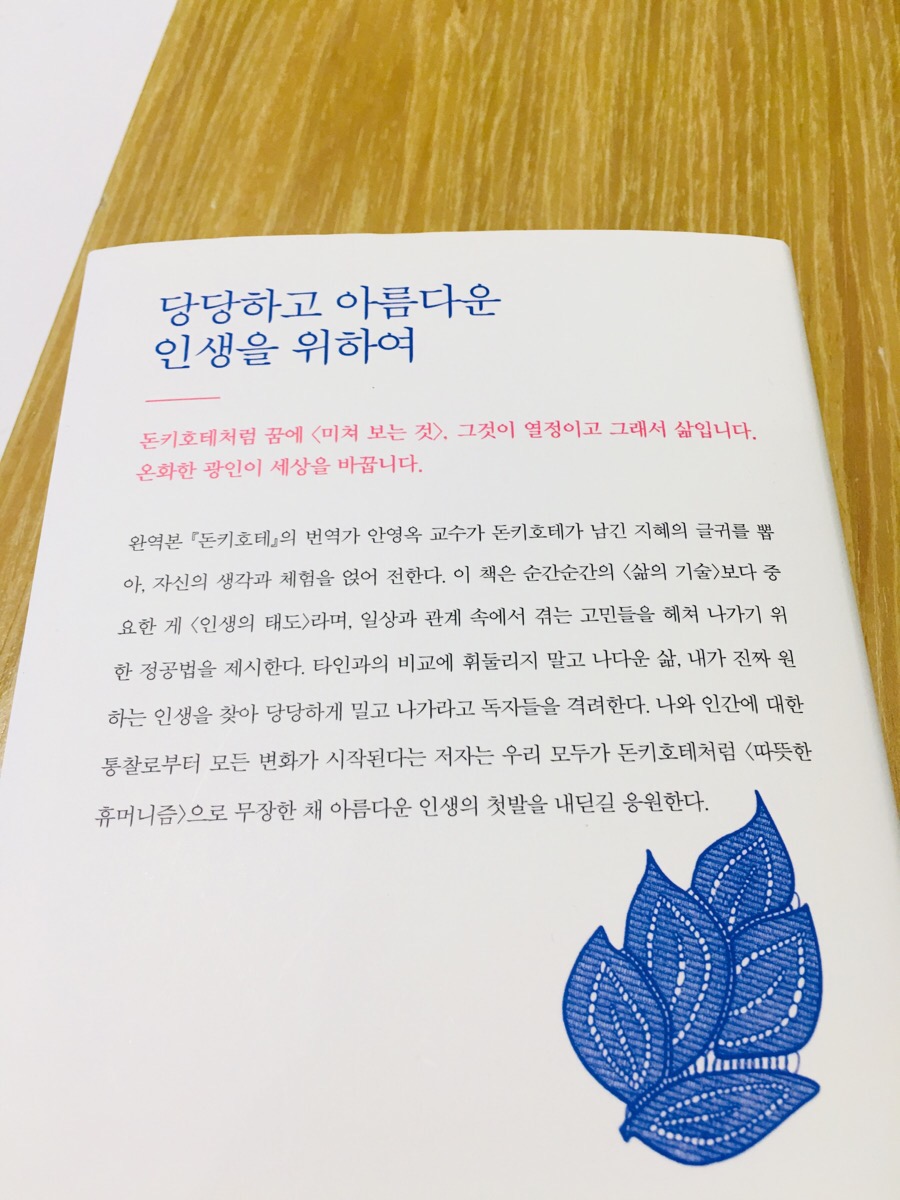 당당하고 아름다운
인생을 위하여
돈키호테처럼 꿈에 〈미쳐 보는 것〉. 그것이 열정이고 그래서 삶입니다.
온화한 광인이 세상을 바꿉니다.
완역본 『돈키호테』의 번역가 안영옥 교수가 돈키호테가 남긴 지혜의 글귀를 뽑
아, 자신의 생각과 체험을 얹어 전한다. 이 책은 순간순간의 〈삶의 기술〉보다 중
요한 게 〈인생의 태도〉라며, 일상과 관계 속에서 겪는 고민들을 헤쳐 나가기 위
한 정공법을 제시한다. 타인과의 비교에 휘둘리지 말고 나다운 삶, 내가 진짜 원
하는 인생을 찾아 당당하게 밀고 나가라고 독자들을 격려한다. 나와 인간에 대한
통찰로부터 모든 변화가 시작된다는 저자는 우리 모두가 돈키호테처럼 〈따뜻한
휴머니즘〉으로 무장한 채 아름다운 인생의 첫발을 내딛길 응원한다.